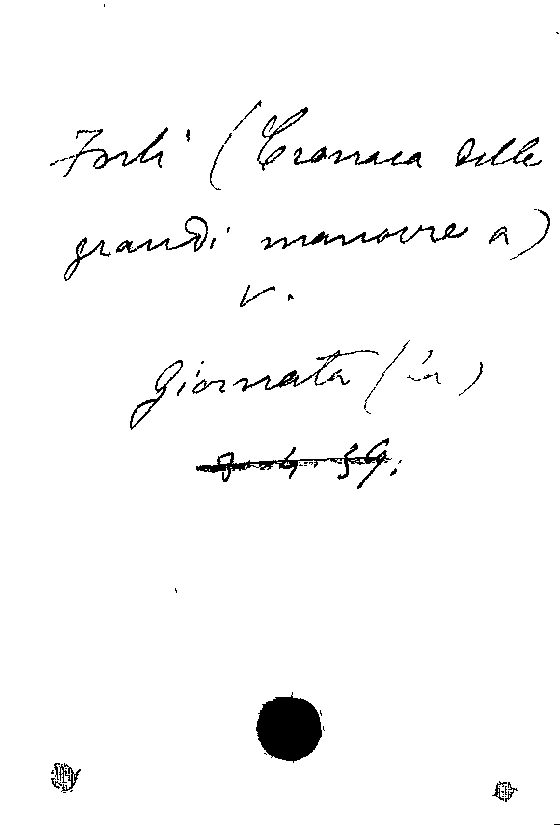 Forlì (Cronaca delle
grandi manovre a)
V.
Giornata (La)